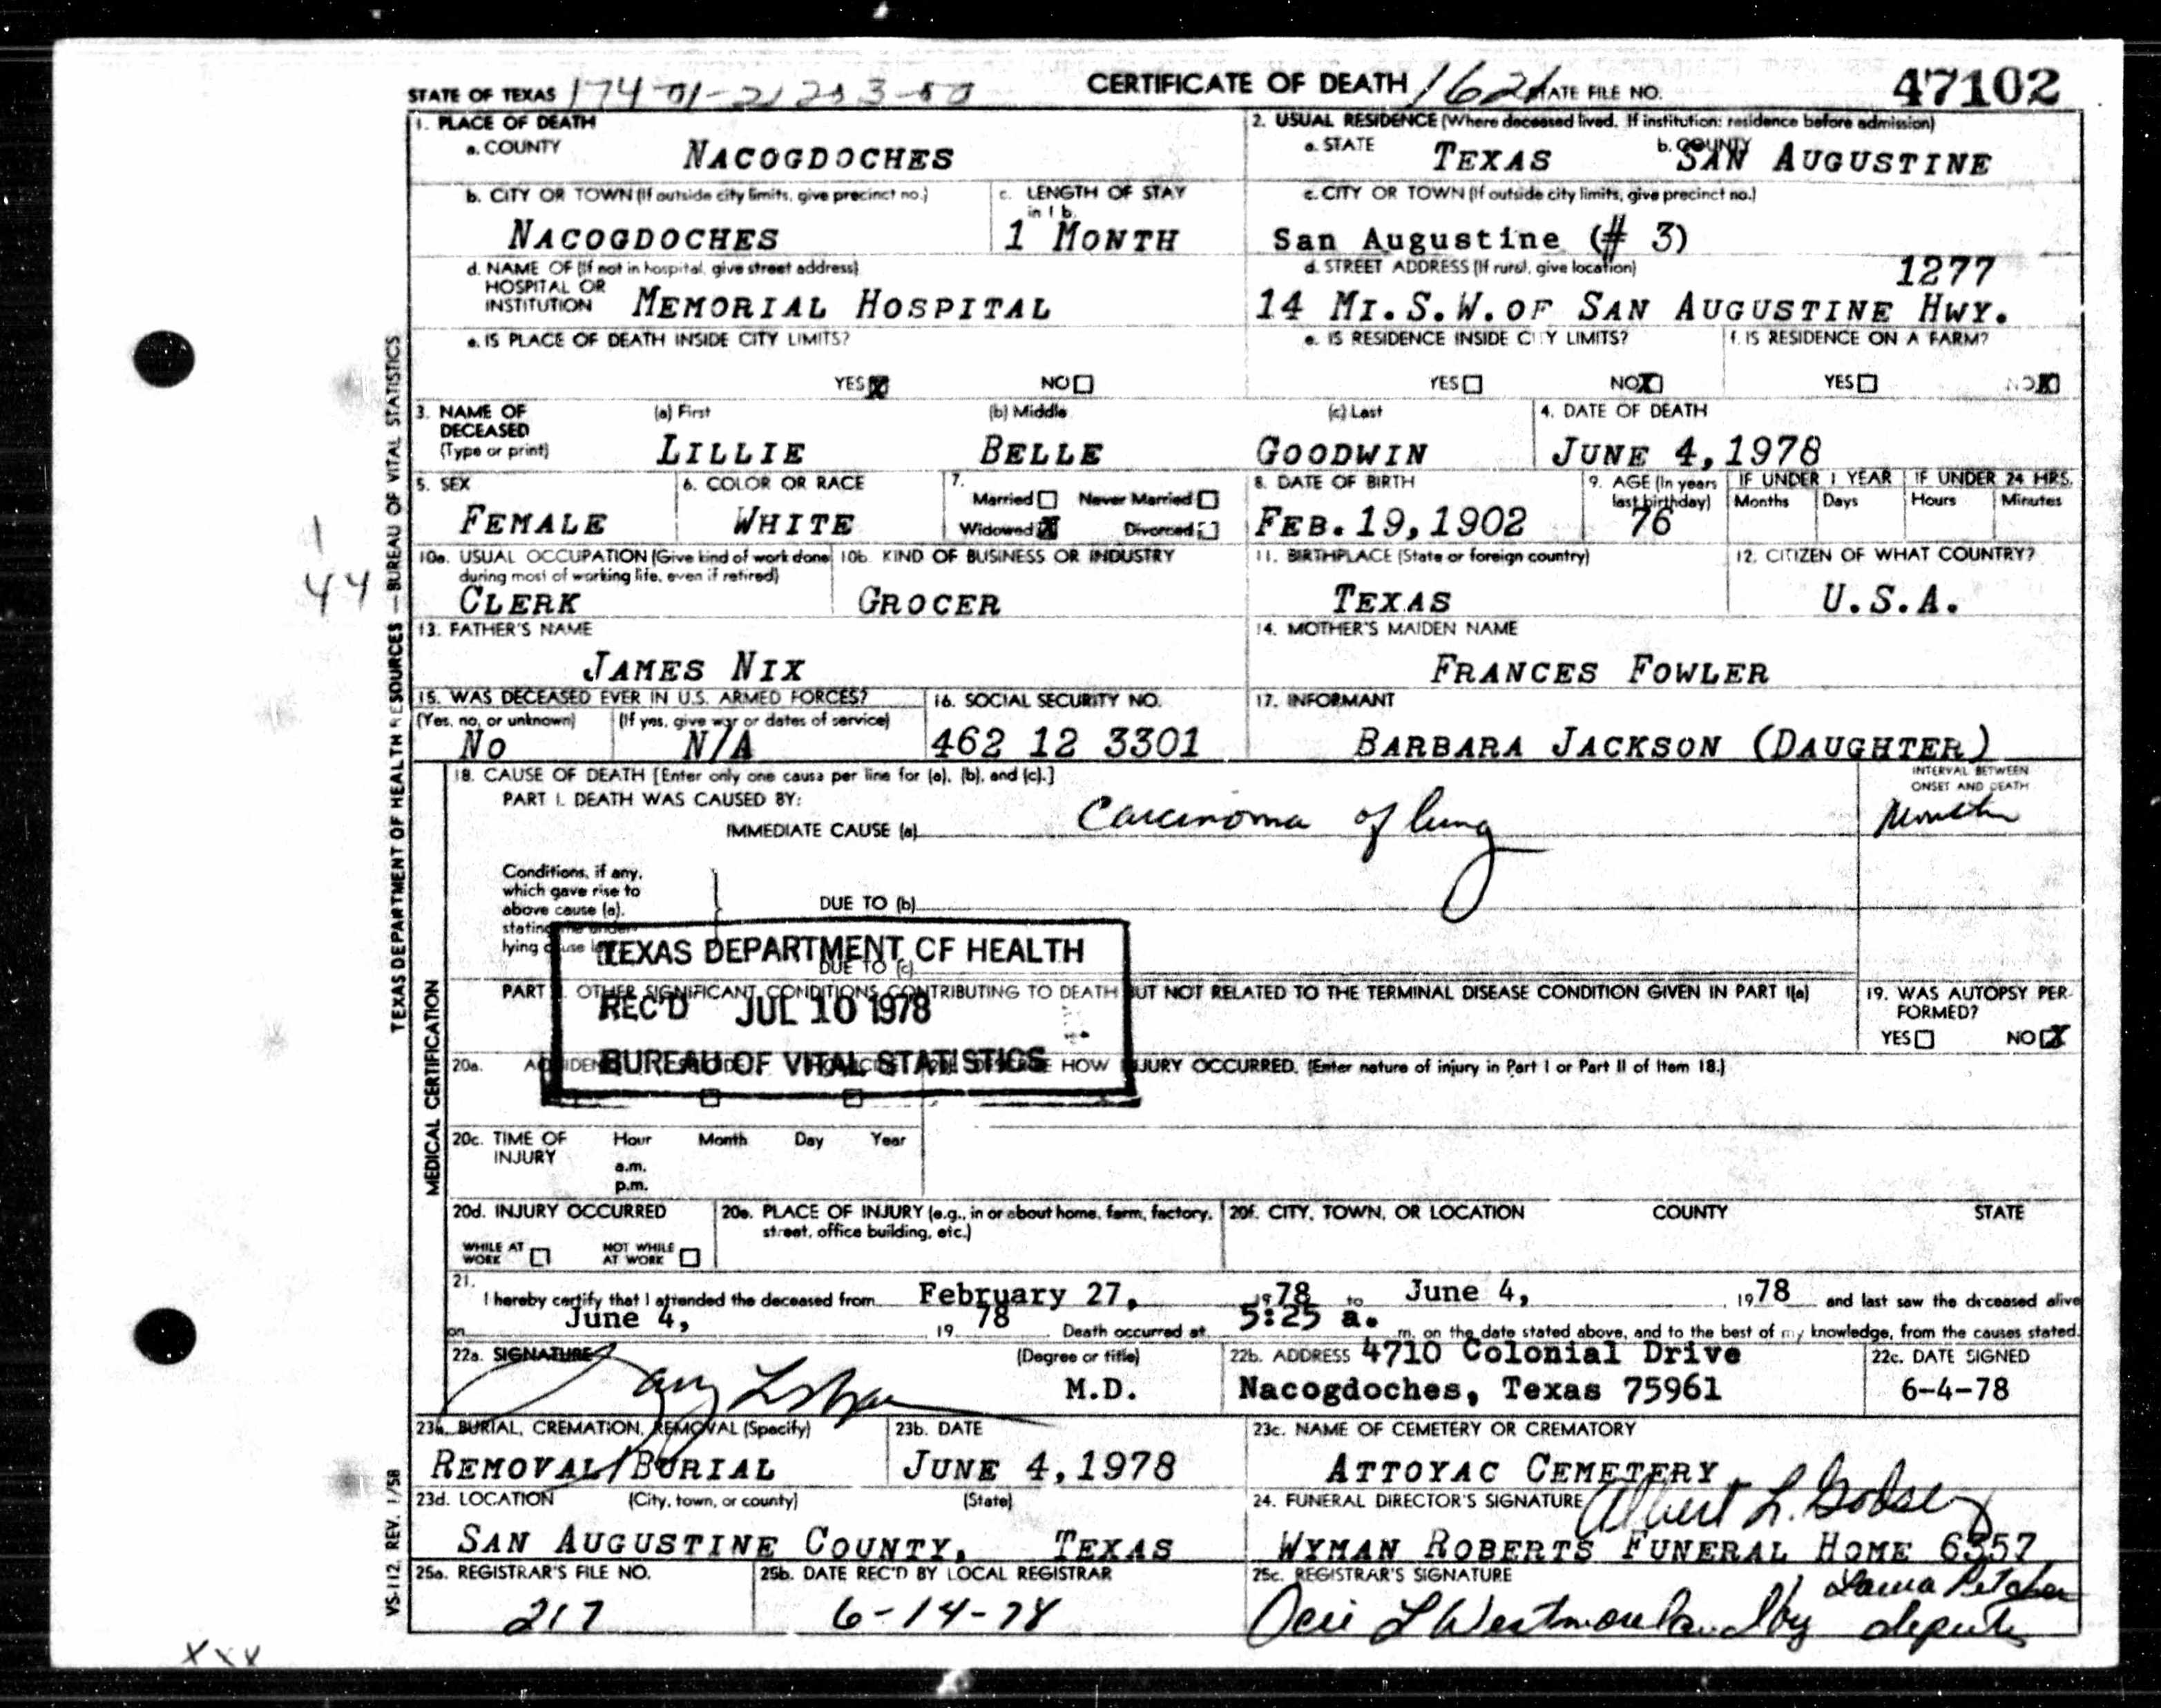 STATE OF TEXAS
CERTIFICATE OF DEATH 162 STATE FILE NO. 47102
1. PLACE OF DEATH
a. COUNTY NACOGDOCHES
2. USUAL RESIDENCE (Where deceased lived. If institution: residence before admission)
a. STATE TEXAS b. COUNTY SAN AUGUSTINE
b. CITY OR TOWN (If outside city limits, give precinct no.)
NACOGDOCHES
c. LENGTH OF STAY in 1 b.
1 MONTH
c. CITY OR TOWN (If outside city limits, give precinct no.)
San Augustine (# 3)
d. NAME OF (If not in hospital, give street address)
HOSPITAL OR
INSTITUTION MEMORIAL HOSPITAL
d. STREET ADDRESS (If rural, give location) 1277
14 MI.S.W.OF SAN AUGUSTINE HWY.
e. IS PLACE OF DEATH INSIDE CITY LIMITS?
YES NO
e. IS RESIDENCE INSIDE CITY LIMITS?
YES NO X
f. IS RESIDENCE ON A FARM?
YES NO X
3. NAME OF DECEASED (Type or print)
(a) First (b) Middle (c) Last
LILLIE BELLE GOODWIN
4. DATE OF DEATH
JUNE 4,1978
5. SEX
FEMALE
6. COLOR OR RACE
WHITE
7.
Married Never Married
Widowed X Divorced
8. DATE OF BIRTH
FEB.19,1902
9. AGE (In years last birthday)
76
IF UNDER 1 YEAR IF UNDER 24 HRS.
Months Days Hours Minutes
10a. USUAL OCCUPATION (Give kind of work done
during most of working life, even if retired)
CLERK
10b. KIND OF BUSINESS OR INDUSTRY
GROCER
11. BIRTHPLACE (State or foreign country)
TEXAS
12. CITIZEN OF WHAT COUNTRY?
U.S.A.
13. FATHER'S NAME
JAMES NIX
14. MOTHER'S MAIDEN NAME
FRANCES FOWLER
15. WAS DECEASED EVER IN U.S. ARMED FORCES?
(Yes, no, or unknown) (If yes, give war or dates of service)
NO N/A
16. SOCIAL SECURITY NO.
462 12 3301
17. INFORMANT
BARBARA JACKSON (DAUGHTER)
18. CAUSE OF DEATH [Enter only one cause per line for (a), (b), and (c).]
INTERVAL BETWEEN ONSET AND DEATH
PART I. DEATH WAS CAUSED BY:
IMMEDIATE CAUSE (a) Carcinoma of lung
Conditions, if any,
which gave rise to
above cause (a),
stating the under-
lying cause
DUE TO (b)
DUE TO (c)
TEXAS DEPARTMENT OF HEALTH
REC'D JUL 10 1978
BUREAU OF VITAL STATISTICS
PART OTHER SIGNIFICANT CONDITIONS CONTRIBUTING TO DEATH BUT NOT RELATED TO THE TERMINAL DISEASE CONDITION GIVEN IN PART I(a)
19. WAS AUTOPSY PER-
FORMED?
YES NO X
20a. HOW INJURY OCCURRED. (Enter nature of injury in Part I or Part II of Item 18.)
20c. TIME OF INJURY
Hour Month Day Year
a.m.
p.m.
20d. INJURY OCCURRED
WHILE AT WORK NOT WHILE AT WORK
20e. PLACE OF INJURY (e.g., in or about home, farm, factory,
street, office building, etc.)
20f. CITY, TOWN, OR LOCATION COUNTY STATE
21.
I hereby certify that I attended the deceased from February 27, 1978 to June 4, 1978 and last saw the deceased alive
on June 4, 19 78 Death occurred at 5:25 a. m. on the date stated above, and to the best of my knowledge, from the causes stated.
22a. SIGNATURE (Degree or title)
M.D.
22b. ADDRESS 4710 Colonial Drive
Nacogdoches, Texas 75961
22c. DATE SIGNED
6-4-78
23a. BURIAL, CREMATION, REMOVAL (Specify)
REMOVAL/BURIAL
23b. DATE
JUNE 4,1978
23c. NAME OF CEMETERY OR CREMATORY
ATTOYAC CEMETERY
23d. LOCATION (City, town, or county) (State)
SAN AUGUSTINE COUNTY, TEXAS
24. FUNERAL DIRECTOR'S SIGNATURE Albert L. Godsey
WYMAN ROBERTS FUNERAL HOME 6357
25a. REGISTRAR'S FILE NO.
217
25b. DATE REC'D BY LOCAL REGISTRAR
6-14-78
25c. REGISTRAR'S SIGNATURE
L Westmoreland by deputy
TEXAS DEPARTMENT OF HEALTH RESOURCES — BUREAU OF VITAL STATISTICS
MEDICAL CERTIFICATION
VS-112 REV. 1/58
1
44
XXX